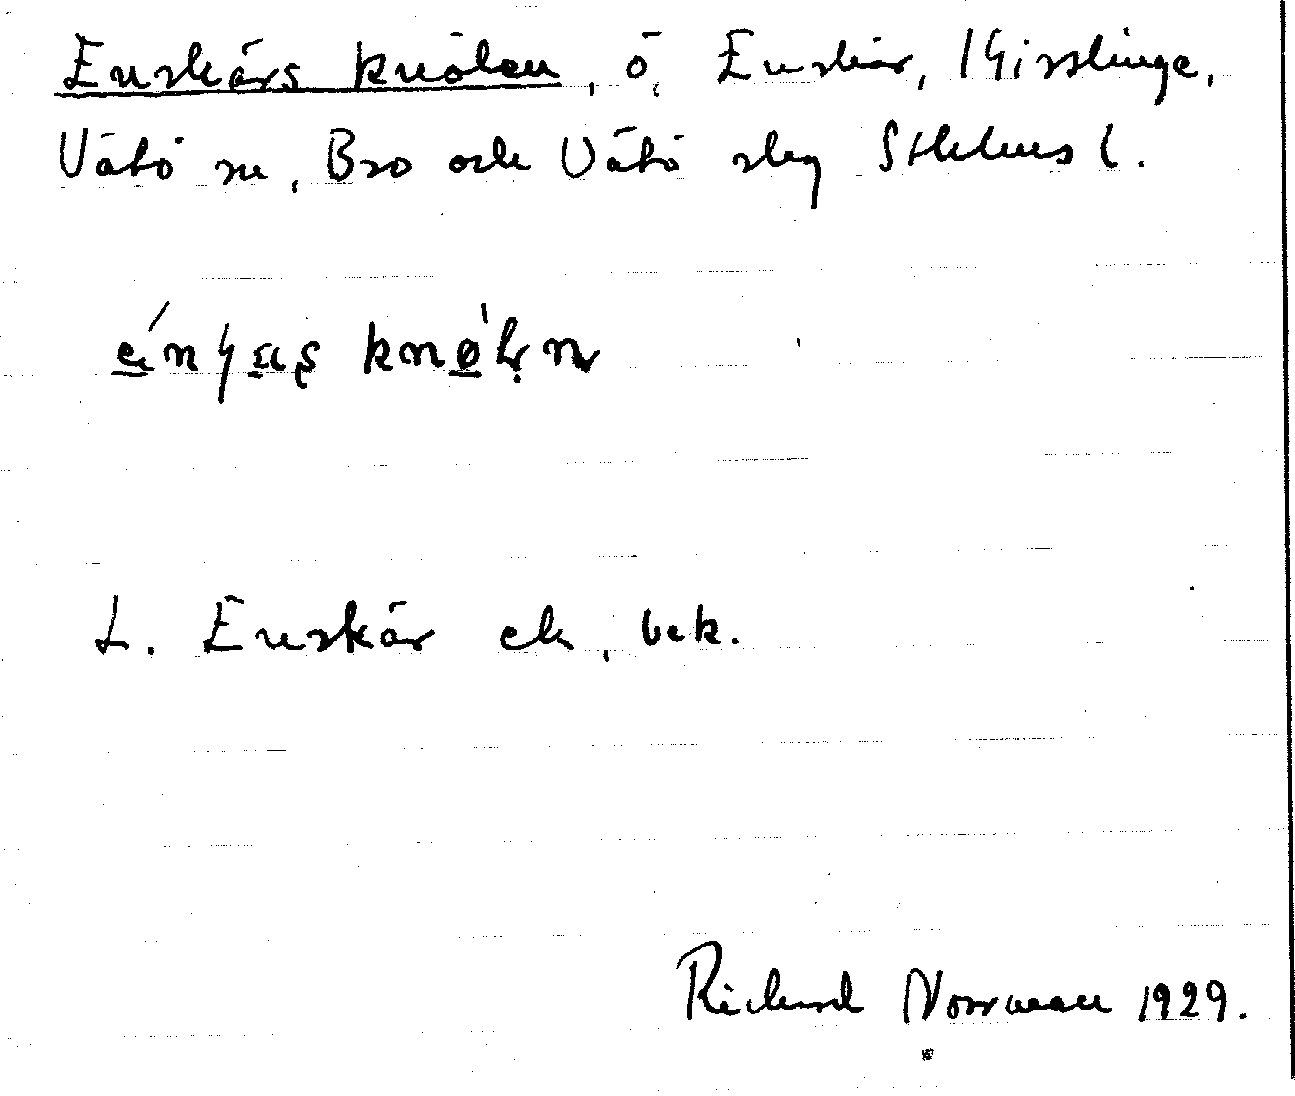 Enskärs knölen, ö, Enskär, Gisslinge,
Vätö sn, Bro och Vätö slg Sthlms l.
L. Enskär ek, bek.
Richard Norrman 1929.